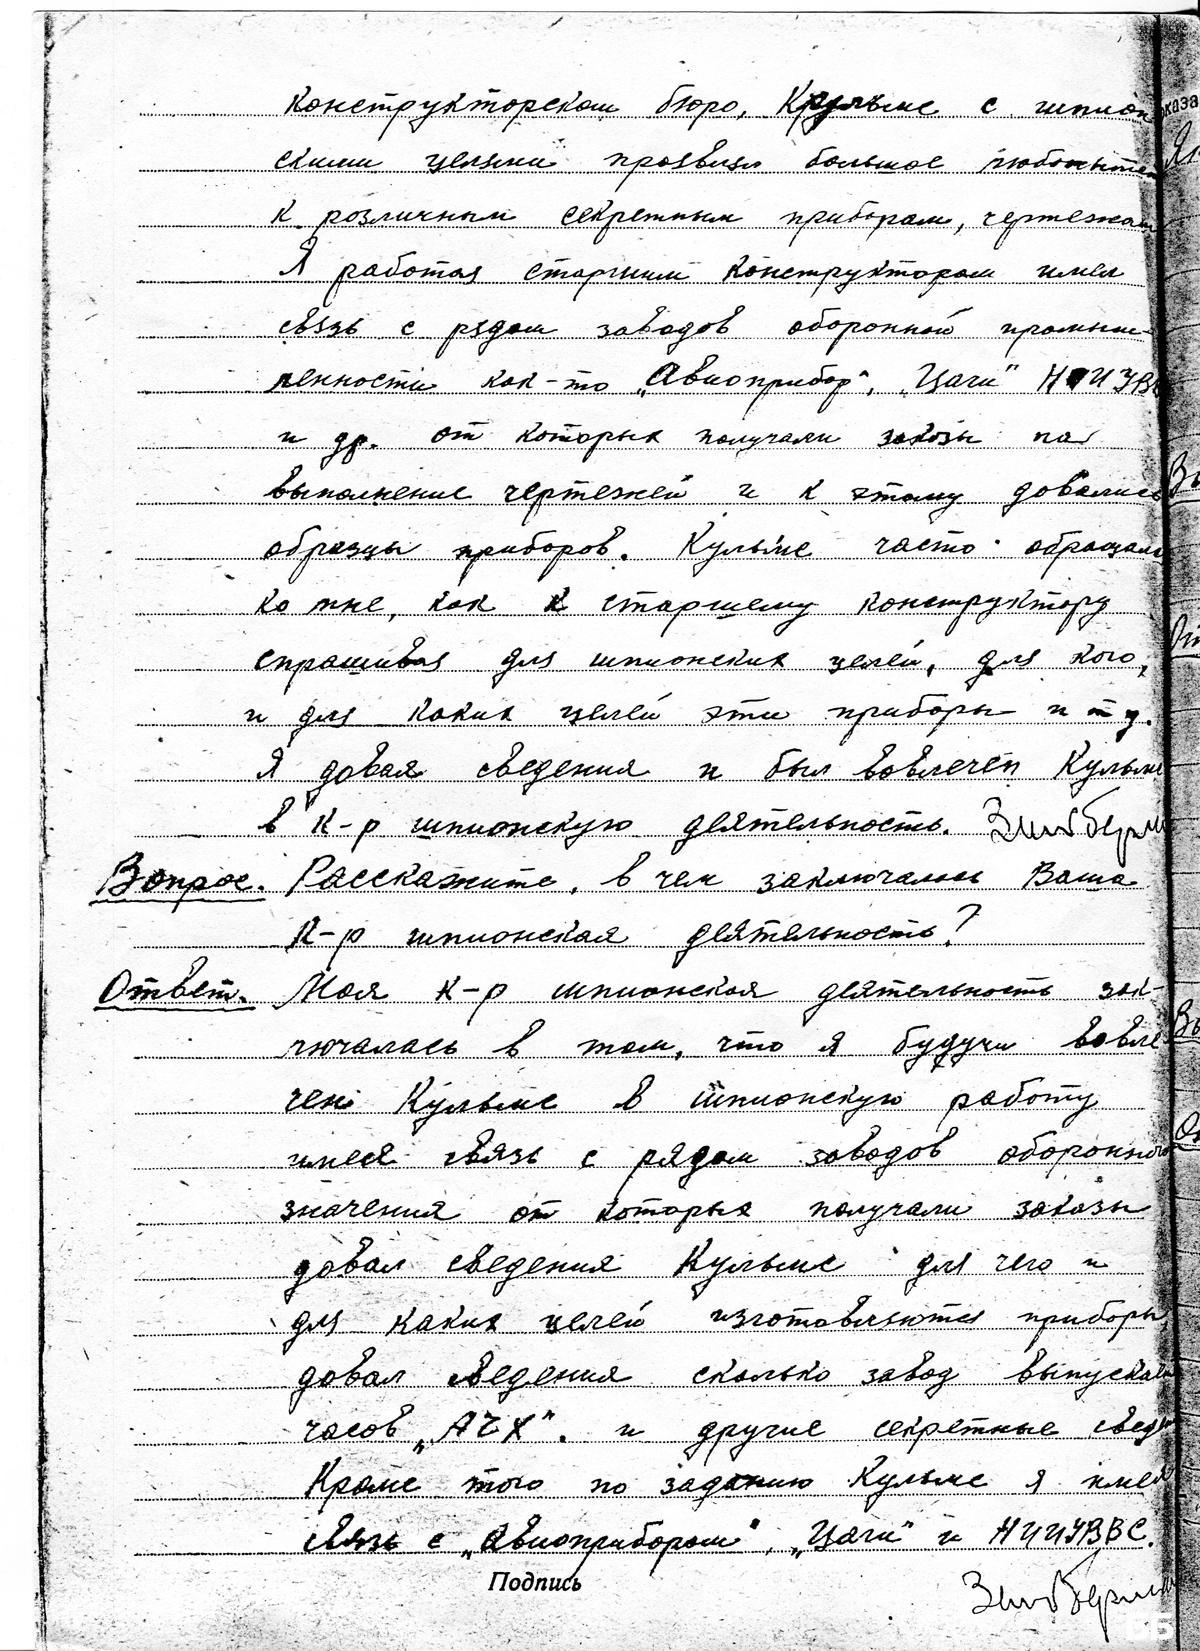 конструкторском бюро, Кульме с шпион
скими целями проявлял большое любопыт
к различным секретным приборам, чертежам
Я работая старшим конструктором имел
связь с рядом заводов оборонной промыш-
ленности как-то „Авиоприбор", „Цаги" НИИ УВВ
и др. от которых получали заказы на
выполнение чертежей и к этому довались
образцы приборов. Кульме часто обращал
ко мне, как к старшему конструктору
спрашивая для шпионских целей, для кого,
и для каких целей эти приборы и т д.
Я довая сведения и был вовлечен Кульме
в к-р шпионскую деятельность.
Вопрос. Расскажите, в чем заключалось Ваша
к-р шпионская деятельность?
Ответ. Моя к-р шпионская деятельность зак-
лючалась в том, что я будучи вовле
чен Кульме в шпионскую работу
имея связь с рядом заводов оборонного
значения от которых получали заказы
довал сведения Кульме для чего и
для каких целей изготовляются приборы,
довал сведения сколько завод выпускал
часов „АЧХ". и другие секретные свед
Кроме того по заданию Кульме я имел
связь с „Авиоприбором", „Цаги" и НИИУВВС.
Подпись